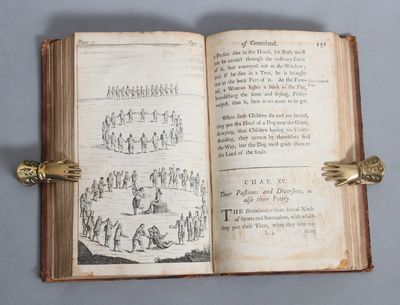 Plate
Page
of Greenland. 151
a Person dies in the House, his Body must
not be carried through the ordinary Entry
of it, but conveyed out at the Window;
and if he dies in a Tent, he is brought
out at the back Part of it. At the Fune-
ral, a Woman lights a Stick in the Fire,
brandishing the same and saying,
that is, here is no more to be got.
When little Children die and are buried,
they put the Head of a Dog near the Grave,
fancying, that Children having no Under-
standing, they cannot by themselves find
the Way, but the Dog must guide them to
the Land of the Souls.
CHAP. XV.
Their Pastimes and Diversions, as
also their Poetry.
THE Greenlanders have several Kinds
of Sports and Recreations, with which
they pass their Time, when they have no-
L 4 thing